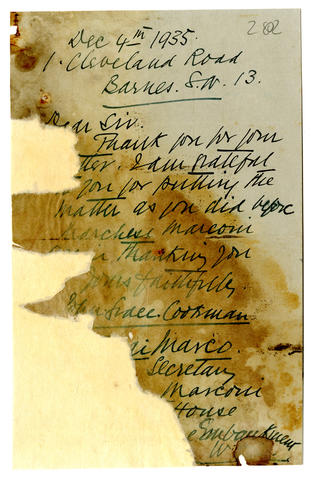 2802
Dec 4th 1935.
1. Cleveland Road
Barnes. S.W. 13.
Dear Sir.
Thank you for your
tter. I am grateful
you for putting the
matter as you did before
Marchese Marconi
thanking you
yours faithfully.
Cookman
Marco.
Secretary
Marconi
House
Embankment
W